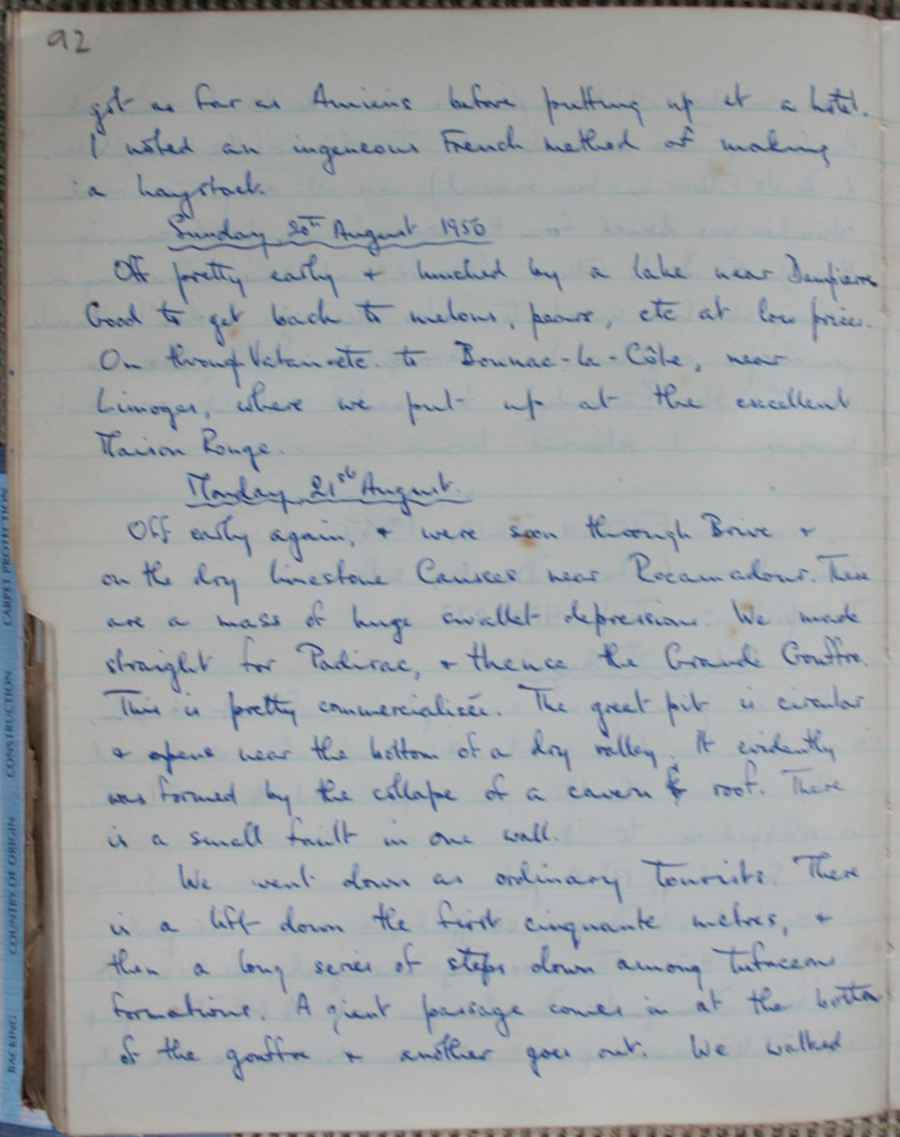 92
got as far as Amiens before putting up at a hotel.
I noted an ingeneous French method of making
a haystack.
Sunday 20th August 1950
Off pretty early + lunched by a lake near
Good to get back to melons, pears, etc at low prices.
On through Vatan etc. to Bonnac-la-Côte, near
Limoges, where we put up at the excellent
Maison Rouge.
Monday 21st August.
Off early again, + were soon through Brive +
on the dry limestone Causses near Rocamadour. There
are a mass of huge swallet depressions. We made
straight for Padirac, + thence the Grande Gouffre.
This is pretty commercialisée. The great pit is circular
+ opens near the bottom of a dry valley. It evidently
was formed by the collapse of a cavern roof. There
is a small fault in one wall.
We went down as ordinary tourists. There
is a lift down the first cinquante metres, +
then a long series of steps down among tufaceous
formations. A giant passage comes in at the bottom
of the gouffre + another goes out. We walked
BACKING
COUNTRY OF ORIGIN
CONSTRUCTION
CARPET PROTECTION